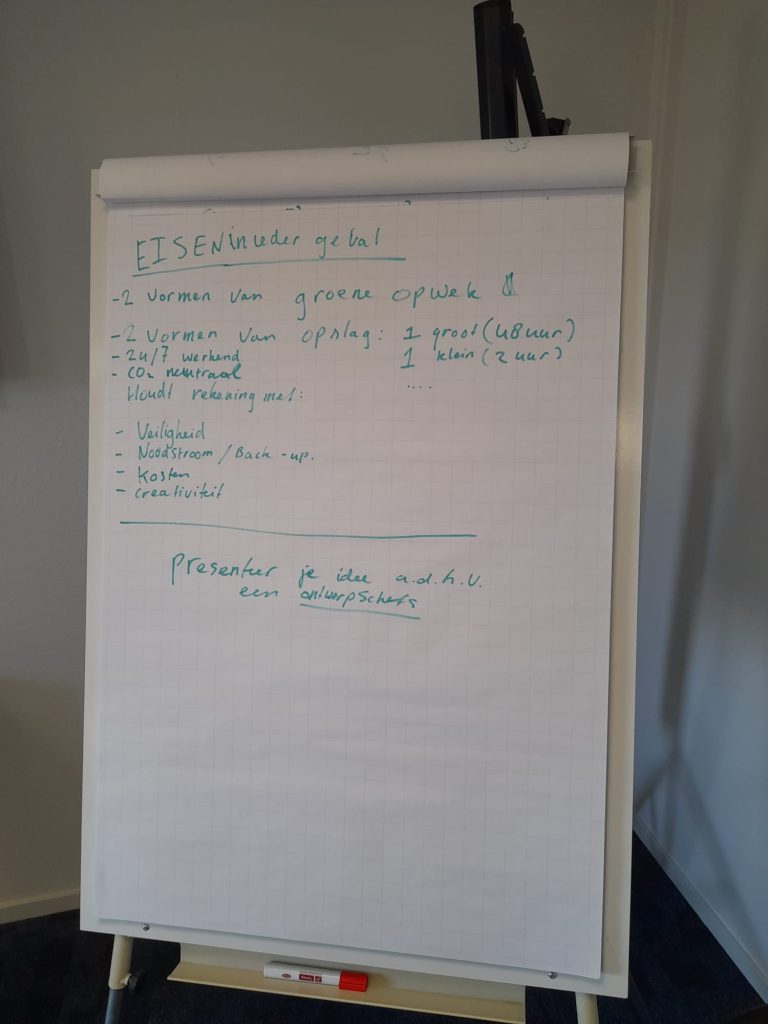 EISEN in ieder geval
- 2 vormen van groene opwek
- 2 vormen van opslag: 1 groot (48 uur)
1 klein (2 uur)
- 24/7 werkend
- CO2 neutraal
....
Houdt rekening met:
- Veiligheid
- Noodstroom / Back-up.
- Kosten
- creativiteit
presenteer je idee a.d.h.v.
een ontwerpschets